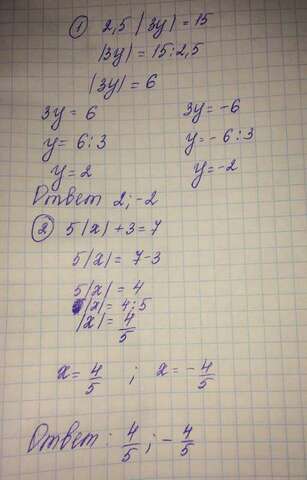 ① 2,5 |3y| = 15
|3y| = 15:2,5
|3y| = 6
3y = 6 3y = -6
y = 6:3 y = -6:3
y = 2 y = -2
Ответ 2; -2
② 5|x| + 3 = 7
5|x| = 7-3
5|x| = 4
|x| = 4:5
|x| = 4/5
x = 4/5 ; x = -4/5
Ответ: 4/5 ; -4/5